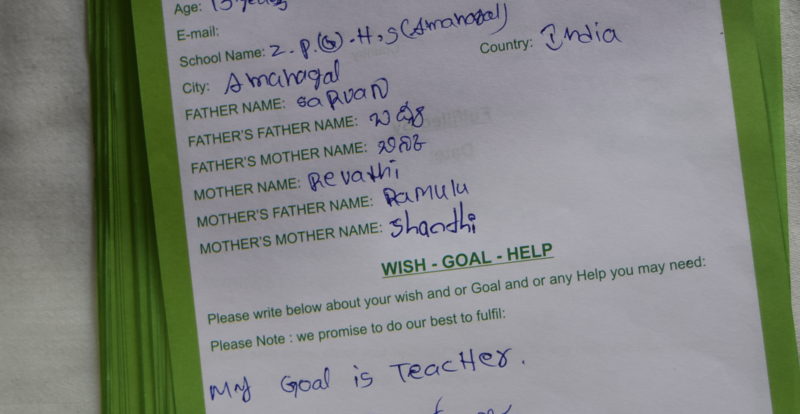 Age: 15 years
E-mail:
School Name: Z.P.(G).H.S (Amanagal)
City: Amanagal Country: India
FATHER NAME: SaRVAN
FATHER'S FATHER NAME:
FATHER'S MOTHER NAME:
MOTHER NAME: Revathi
MOTHER'S FATHER NAME: Ramulu
MOTHER'S MOTHER NAME: Shandhi
WISH - GOAL - HELP
Please write below about your wish and or Goal and or any Help you may need:
Please Note : we promise to do our best to fulfil:
My Goal is TeacHer.